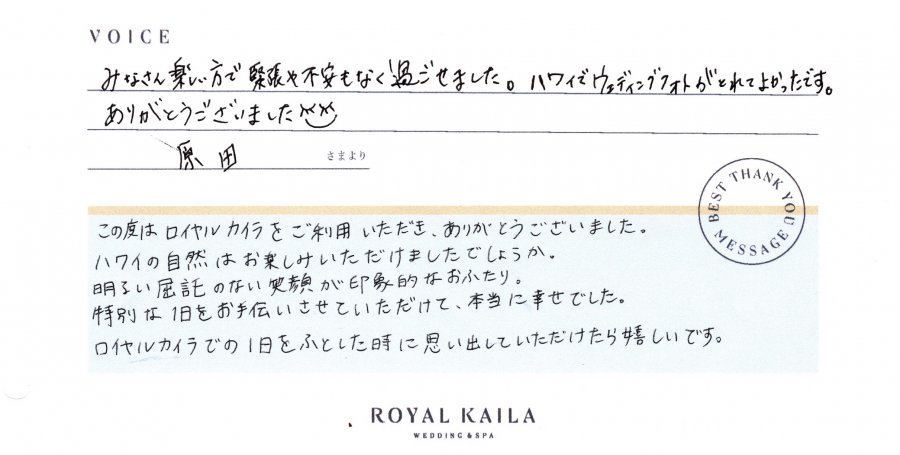 VOICE
みなさん楽しい方で緊張や不安もなく過ごせました。ハワイでウェディングフォトがとれてよかったです。
ありがとうございました
原田 さまより
BEST THANK YOU MESSAGE
この度はロイヤルカイラをご利用いただき、ありがとうございました。
ハワイの自然はお楽しみいただけましたでしょうか。
明るい屈託のない笑顔が印象的なおふたり。
特別な1日をお手伝いさせていただけて、本当に幸せでした。
ロイヤルカイラでの1日をふとした時に思い出していただけたら嬉しいです。
ROYAL KAILA
WEDDING & SPA